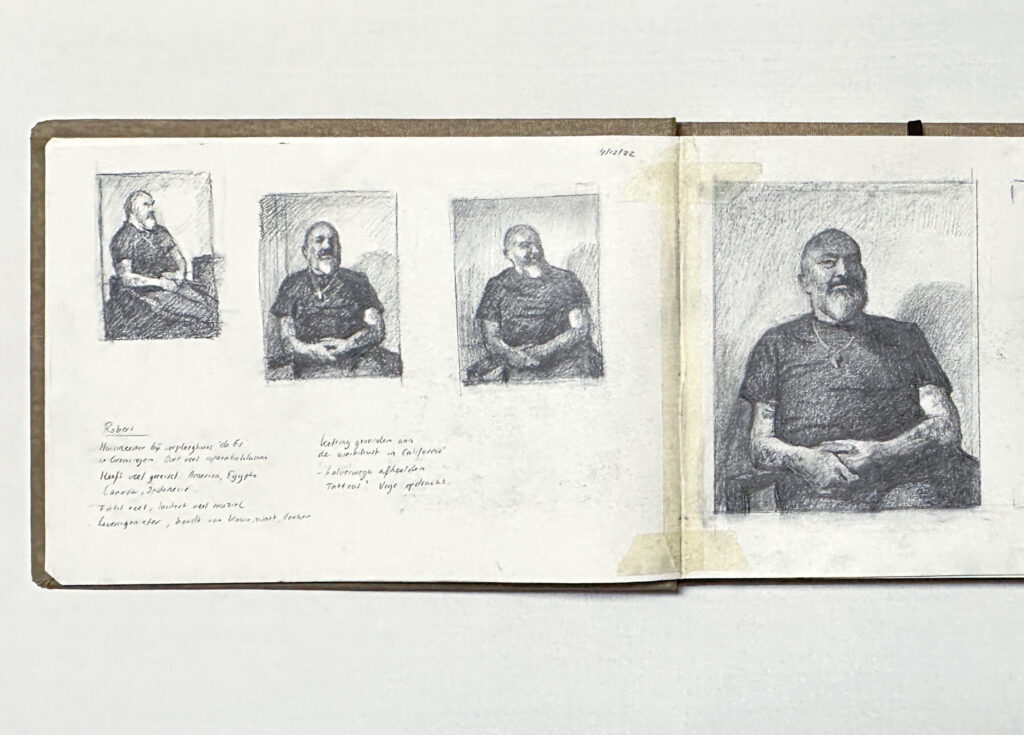 4/12/22
Robert
Huismeester bij verpleeghuis 'de Es
in Groningen. Doet veel reparatieklussen
Heeft veel gereisd: America, Egypte
Canada, Indonesië
Fietst veel, luistert veel muziek
Levensgenieter, houdt van
ketting gevonden aan
de westkust in California
halverwege afbeelden
Tattoos? Vrije opdracht.